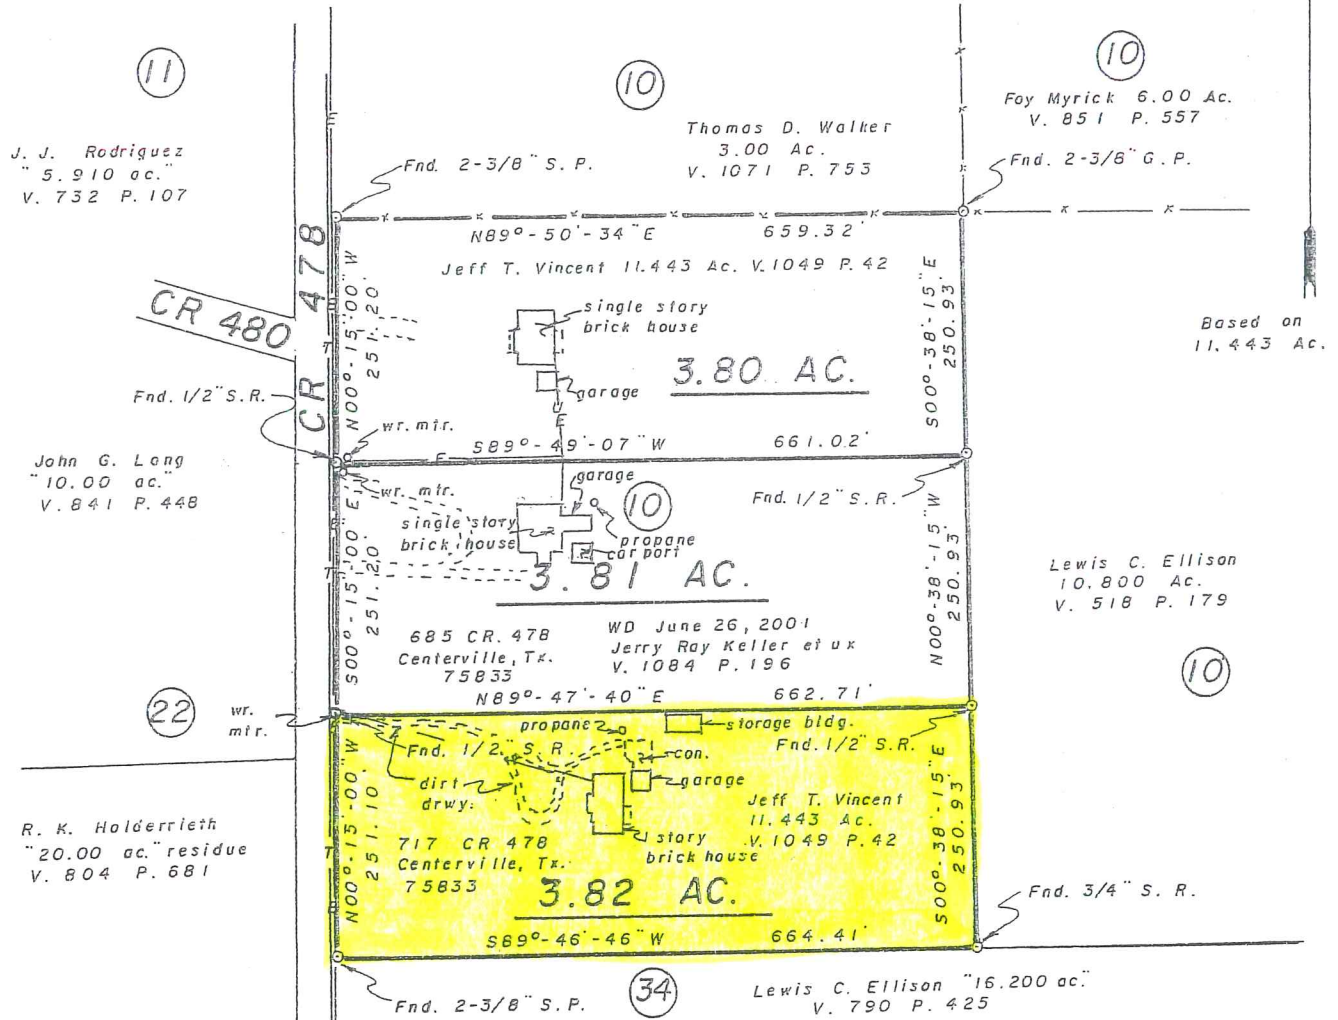 11
10
10
J. J. Rodriguez
"5.910 ac."
V. 732 P. 107
Fnd. 2-3/8" S. P.
Thomas D. Walker
3.00 Ac.
V. 1071 P. 753
Foy Myrick 6.00 Ac.
V. 851 P. 557
Fnd. 2-3/8" G. P.
N89°-50'-34"E 659.32'
Jeff T. Vincent 11.443 Ac. V. 1049 P. 42
CR 478
CR 480
N00°-15'-00" W
251.20'
single story
brick house
garage
3.80 AC.
S00°-38'-15" E
250.93'
Based on
11.443 Ac.
Fnd. 1/2" S.R.
wr. mtr.
U
E
S89°-49'-07"W 661.02'
E
John G. Lang
"10.00 ac."
V. 841 P. 448
wr. mtr.
garage
10
Fnd. 1/2" S.R.
single story
brick house
propane
car port
3.81 AC.
S00°-15'-00 E
251.20'
N00°-38'-15"W
250.93'
Lewis C. Ellison
10.800 Ac.
V. 518 P. 179
685 CR. 478
Centerville, Tx.
75833
WD June 26, 2001
Jerry Ray Keller et ux
V. 1084 P. 196
10
N89°-47'-40"E 662.71'
22
wr.
mtr.
propane
storage bldg.
Fnd. 1/2" S. R.
con.
Fnd. 1/2" S.R.
dirt
drwy.
garage
Jeff T. Vincent
11.443 Ac.
V. 1049 P. 42
1 story
brick house
N00°-15'-00" W
251.10'
S00°-38'-15"E
250.93'
R. K. Holderrieth
"20.00 ac." residue
V. 804 P. 681
717 CR 478
Centerville, Tx.
75833
3.82 AC.
Fnd. 3/4" S. R.
S89°-46'-46"W 664.41'
Fnd. 2-3/8" S. P.
34
Lewis C. Ellison "16.200 ac."
V. 790 P. 425